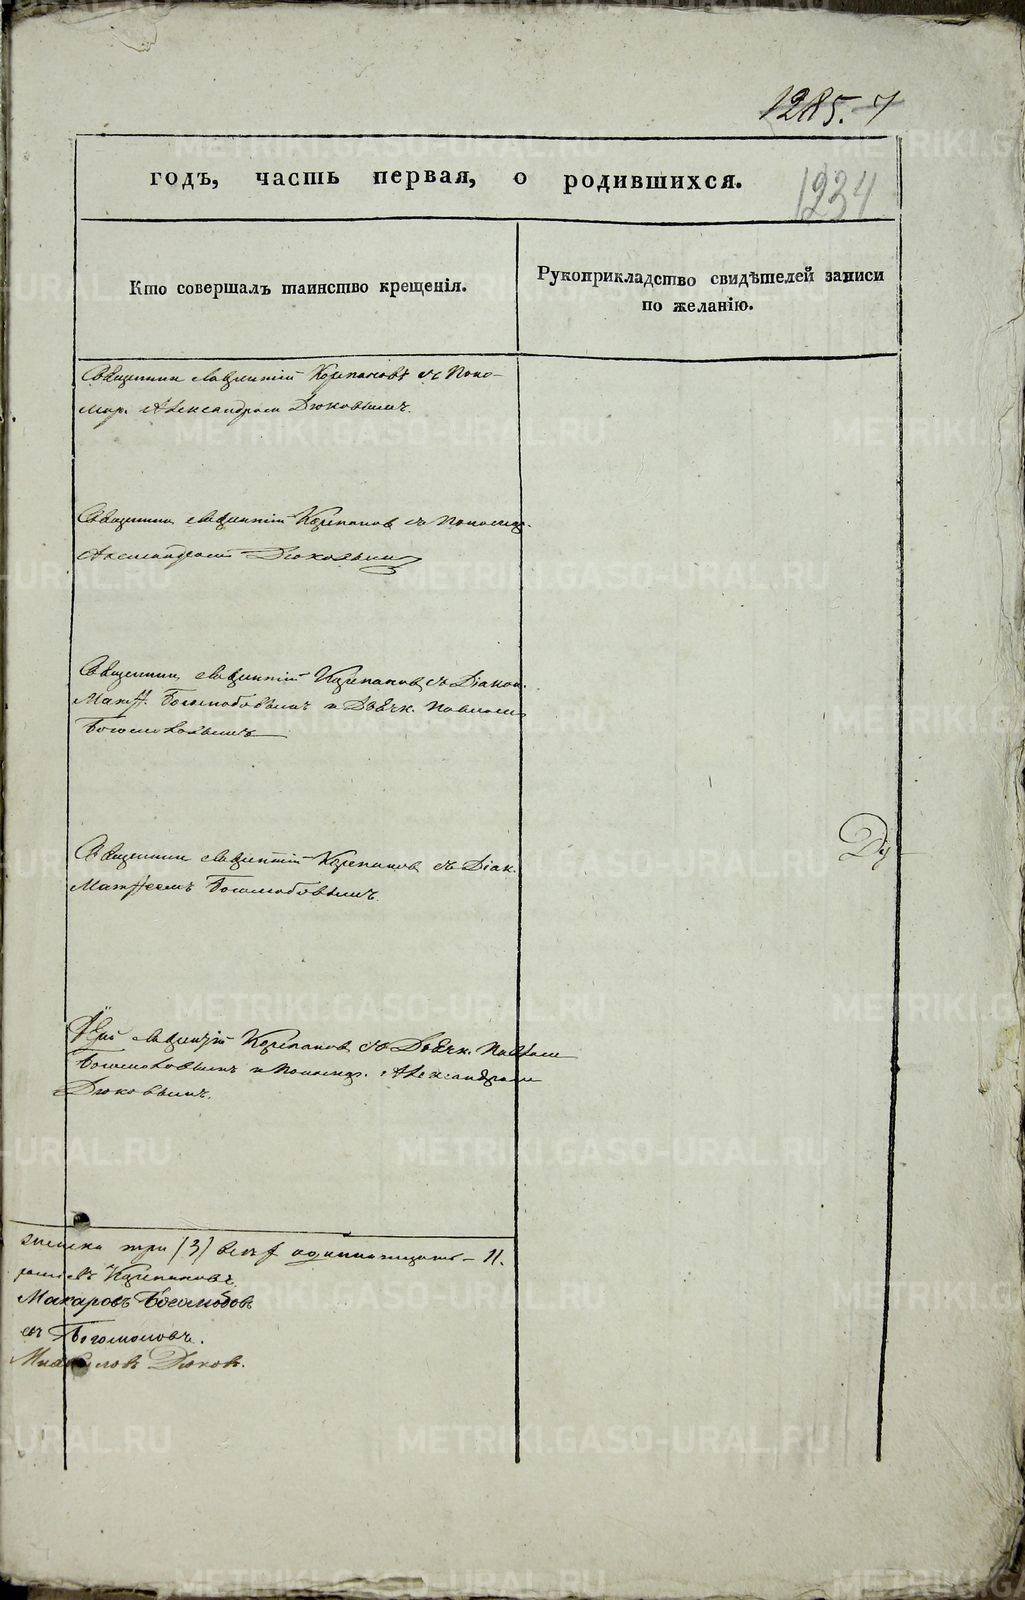 1285. 7
годъ, часть первая, о родившихся.
1234
Кто совершалъ таинство крещенія.
Рукоприкладство свидѣтелей записи
по желанію.
Священник Лаврентій Карпиновъ съ Поно-
мар. Александромъ Дюковымъ.
Священник Лаврентій съ Пономар.
Александромъ Дюковымъ
Священник Лаврентій съ Діакон.
Матѳ. Боголюбовымъ и Дьячк. Павломъ
Богомоловымъ
Священник Лаврентій съ Діак.
Матѳеемъ Боголюбовымъ.
Лаврентій съ Дьячк. Павломъ
Богомоловымъ и Пономар. Александромъ
Дюковымъ.
три (3) всѣхъ одиннадцать - 11.
Макаровъ Боголюбовъ
Богомоловъ.
Дюковъ.
METRIKI.GASO-URAL.RU